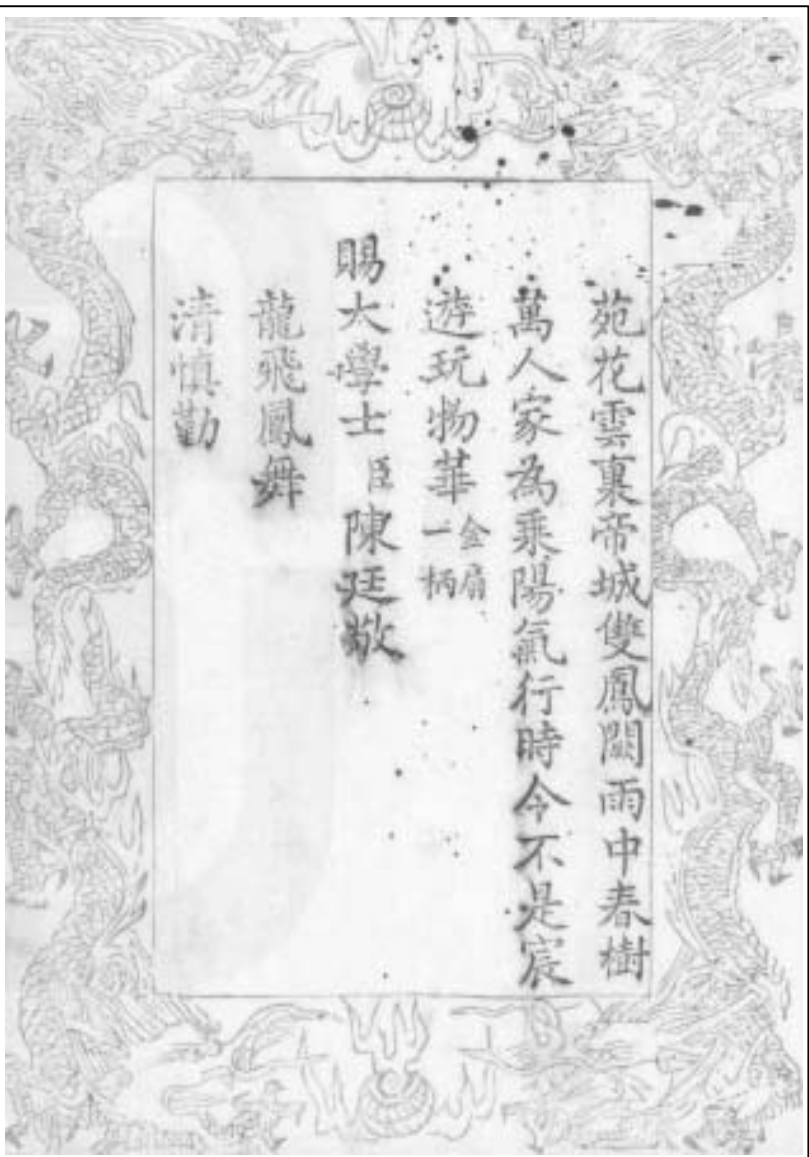 苑花雲裏帝城雙鳳闕雨中春樹
萬人家為乘陽氣行時令不是宸
遊玩物華金扇一柄
賜大學士臣陳廷敬
龍飛鳳舞
清慎勤